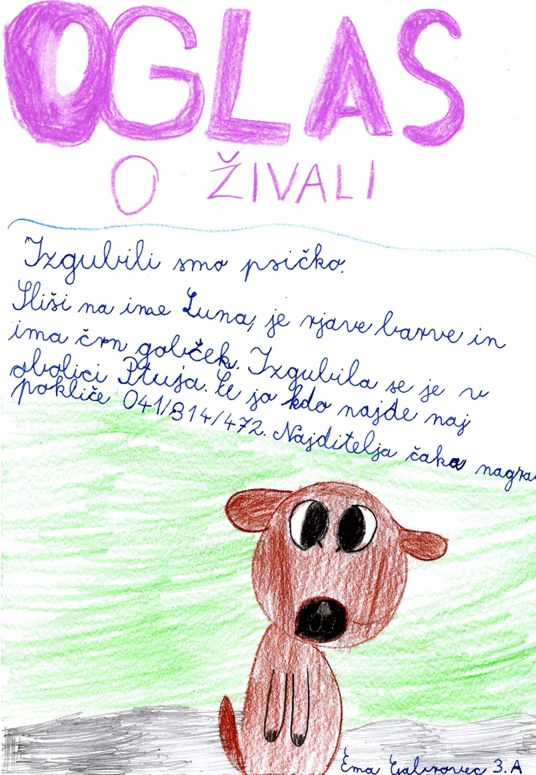 OGLAS
O ŽIVALI
Izgubili smo psičko.
Sliši na ime Luna, je rjave barve in
ima črn gobček. Izgubila se je v
okolici Ptuja. Če jo kdo najde naj
pokliče 041/814/472. Najditelja čaka nagra
Ema 3. A